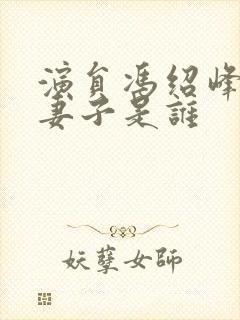 演員馮紹峰
妻子是誰
妖孽女師